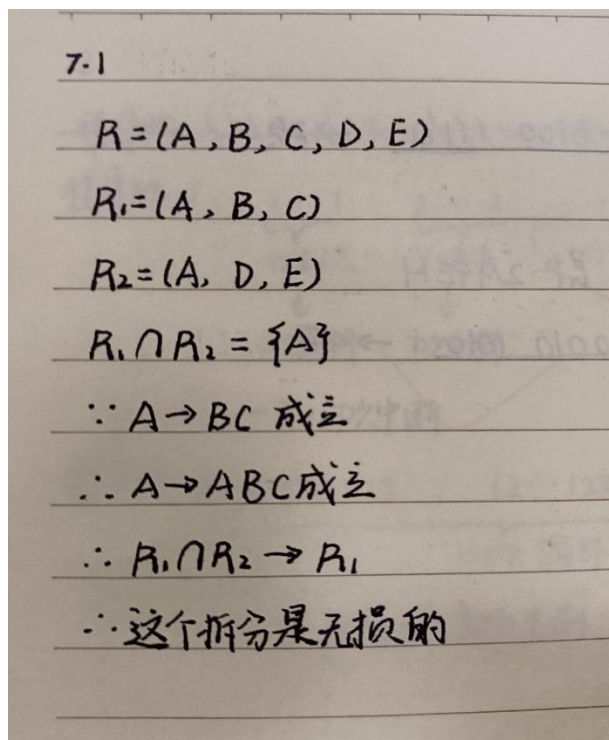 7.1
R=(A,B,C,D,E)
R₁=(A,B,C)
R₂=(A,D,E)
R₁∩R₂={A}
∵A→BC成立
∴A→ABC成立
∴R₁∩R₂→R₁
∴这个拆分是无损的